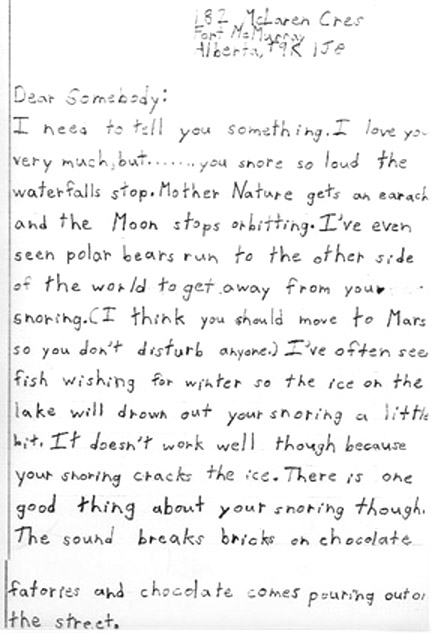 182 McLaren Cres
Fort McMurray
Alberta, T9K 1J8
Dear Somebody:
I need to tell you something. I love yo
very much, but........you snore so loud the
waterfalls stop. Mother Nature gets an earach
and the Moon stops orbitting. I've even
seen polar bears run to the other side
of the world to get away from your
snoring. (I think you should move to Mars
so you don't disturb anyone.) I've often see
fish wishing for winter so the ice on the
lake will drown out your snoring a little
bit. It doesn't work well though because
your snoring cracks the ice. There is one
good thing about your snoring though.
The sound breaks bricks on chocolate
fatories and chocolate comes pouring out on
the street.